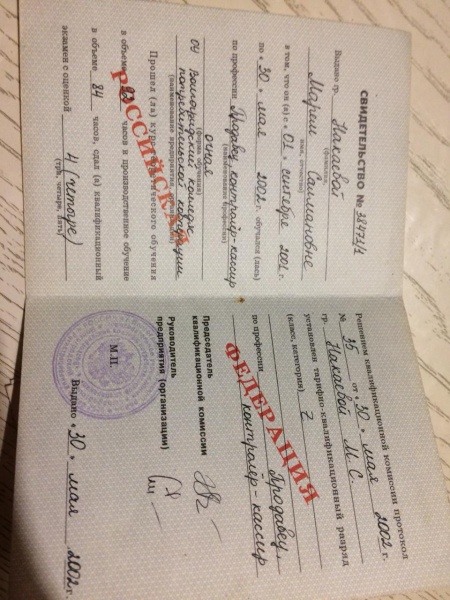 СВИДЕТЕЛЬСТВО № 38473/1
Выдано гр. Накаевой
(фамилия)
Марем Саламановне
имя, отчество)
в том, что он (а) с « 01 » сентября 2001 г.
по « 30 » мая 2002 г. обучался (лась)
по профессии Продавец контролёр-кассир
(наименование профессии)
очная
(форма обучения)
04
(наименование предприятия,
Прошел (ла) курс теоретического обучения
в объеме часов и производственное обучение
в объеме 84 часов, сдал (а) квалификационный
экзамен с оценкой 4 (четыре)
(три, четыре, пять)
РОССИЙСКАЯ
Решением квалификационной комиссии протокол
№ 35 от « 30 » мая 2002 г.
гр. Накаевой М. С.
установлен тарифно-квалификационный разряд
(класс, категория) 2
по профессии Продавец,
контролёр - кассир
ФЕДЕРАЦИЯ
Председатель
квалификационной комиссии
Руководитель
предприятия (организации)
М.П.
Выдано « 30 » мая 2002 г.